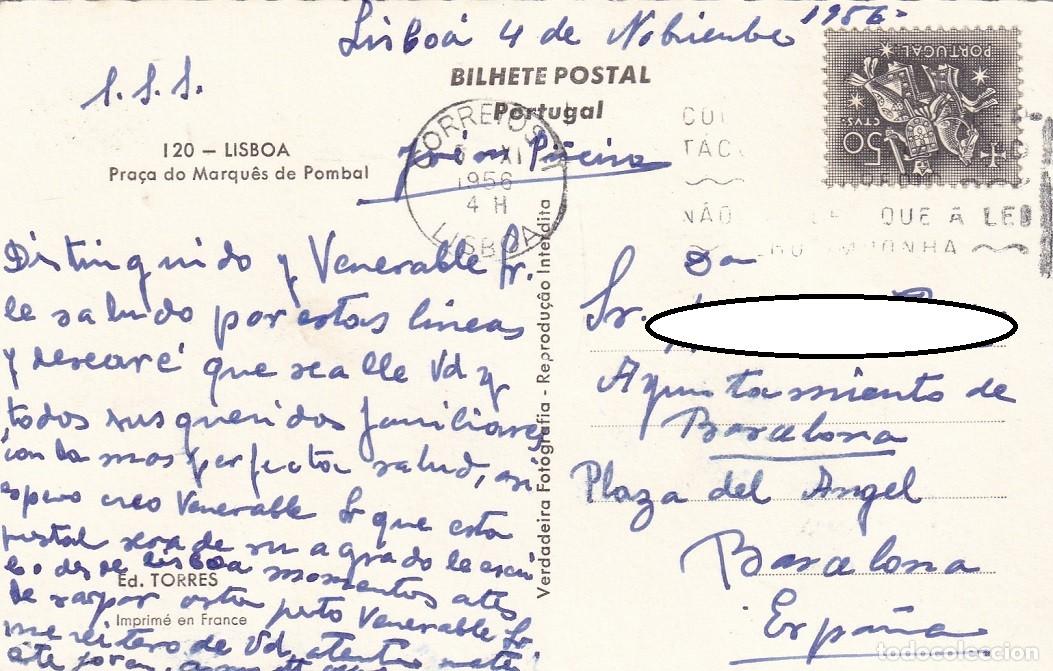 Lisboa 4 de Nobiembe 1956=
S.S.S.
BILHETE POSTAL
Portugal
120 – LISBOA
Praça do Marquês de Pombal
CORREIOS
XI
1956
4 H
LISBOA
PORTUGAL
50
CTVS.
NÃO QUE A LEI
Distinguido y Venerable Sr.
le saludo por estas lineas
y desearé que se alle Vd y
todos sus queridos familiares
con la mas perfecta salud, asi
espero creo Venerable Sr que esta
postal sera de su agrado le escri
bo desde Lisboa momentos ates
de
Venerable Sr
me reitero de Vd. atento
Ed. TORRES
Imprimé en France
Verdadeira Fotografia - Reprodução Interdita
Sr.
Ayuntamiento de
Barcelona
Plaza del Angel
Barcelona
España
todocoleccion